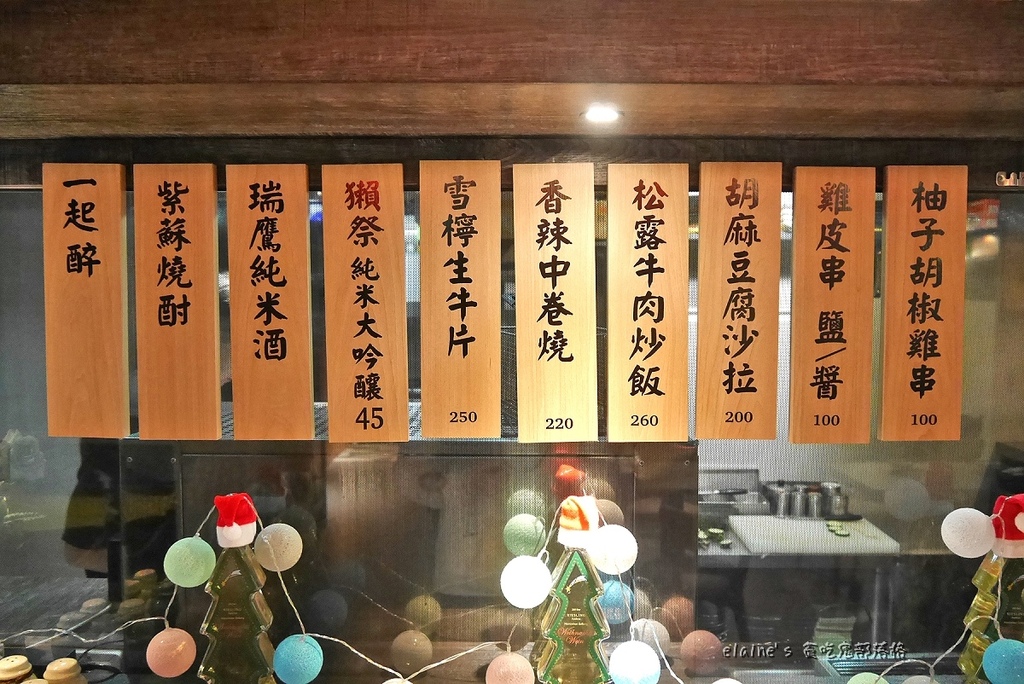 柚子胡椒雞串 100
雞皮串 鹽/醬 100
胡麻豆腐沙拉 200
松露牛肉炒飯 260
香辣中卷燒 220
雪檸生牛片 250
獺祭 純米大吟釀 45
瑞鷹純米酒
紫蘇燒酎
一起醉
elaine's 貪吃鬼部落格